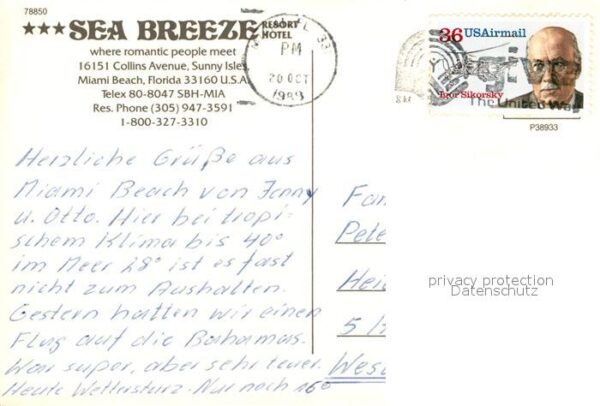 78850
★★★SEA BREEZE RESORT HOTEL
where romantic people meet
16151 Collins Avenue, Sunny Isles
Miami Beach, Florida 33160 U.S.A.
Telex 80-8047 SBH-MIA
Res. Phone (305) 947-3591
1-800-327-3310
PM
20 OCT
1989
36 USAirmail
Igor Sikorsky
The United Way
P38933
Herzliche Grüße aus
Miami Beach von Jenny
u. Otto. Hier bei tropi-
schem Klima bis 40°
im Meer 28° ist es fast
nicht zum Aushalten.
Gestern hatten wir einen
Flug auf die Bahamas.
War super, aber sehr teuer.
Heute Wettersturz. Nur noch 16°
Fam
Pete
Heid
5/
Wes
privacy protection
Datenschutz